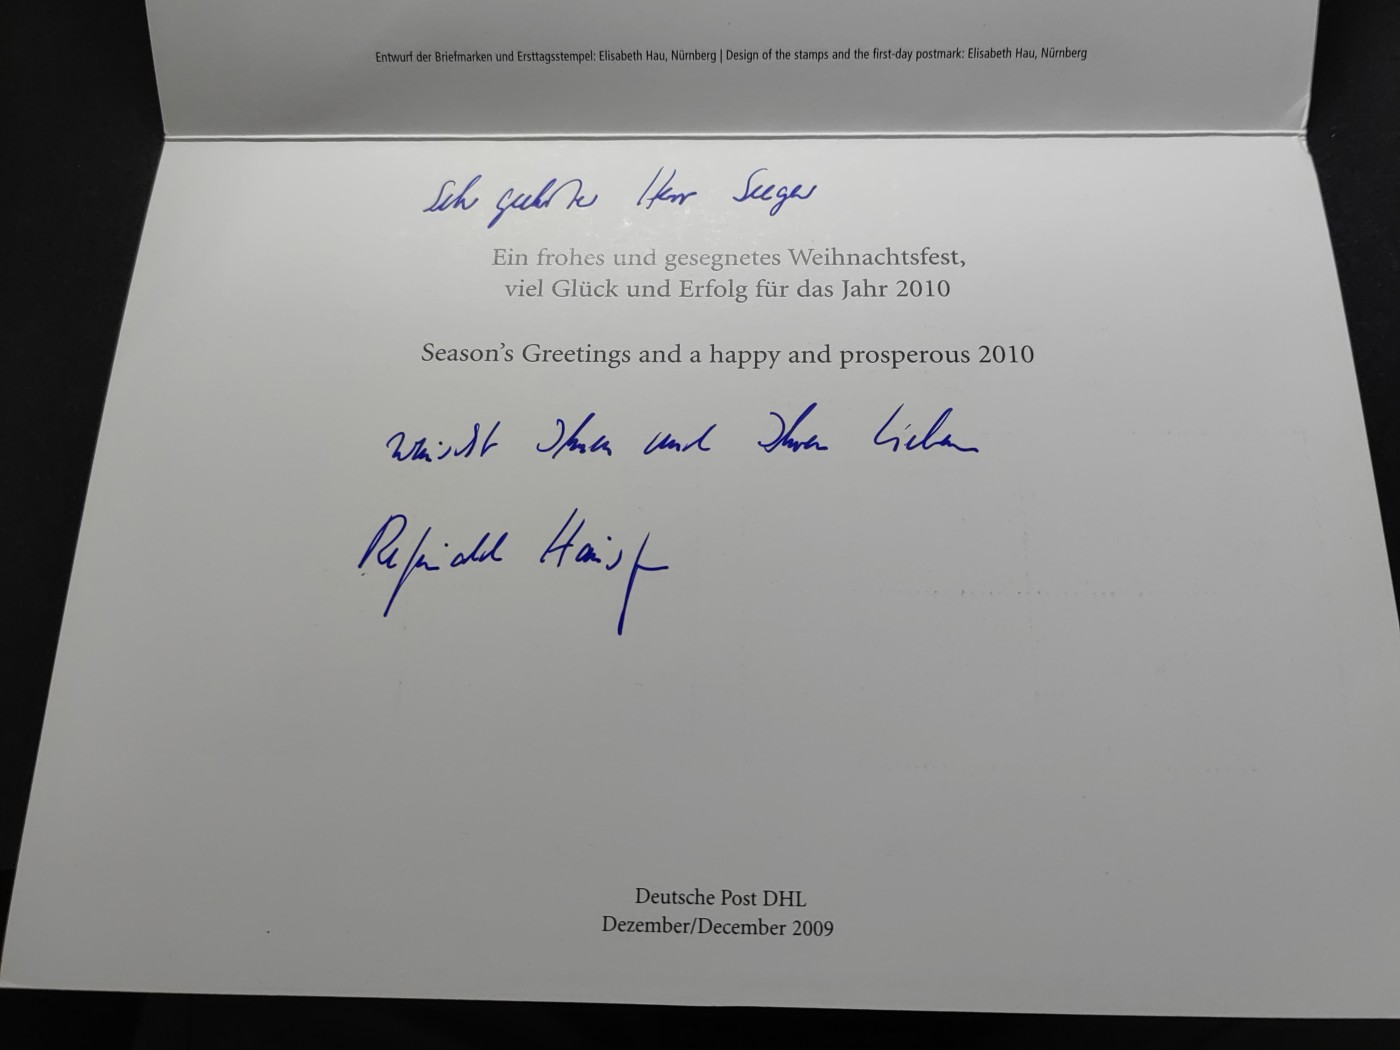 Entwurf der Briefmarken und Ersttagsstempel: Elisabeth Hau, Nürnberg | Design of the stamps and the first-day postmark: Elisabeth Hau, Nürnberg
Sehr geehrter Herr Seeger
Ein frohes und gesegnetes Weihnachtsfest,
viel Glück und Erfolg für das Jahr 2010
Season's Greetings and a happy and prosperous 2010
wünscht Ihnen und Ihren Lieben
Deutsche Post DHL
Dezember/December 2009